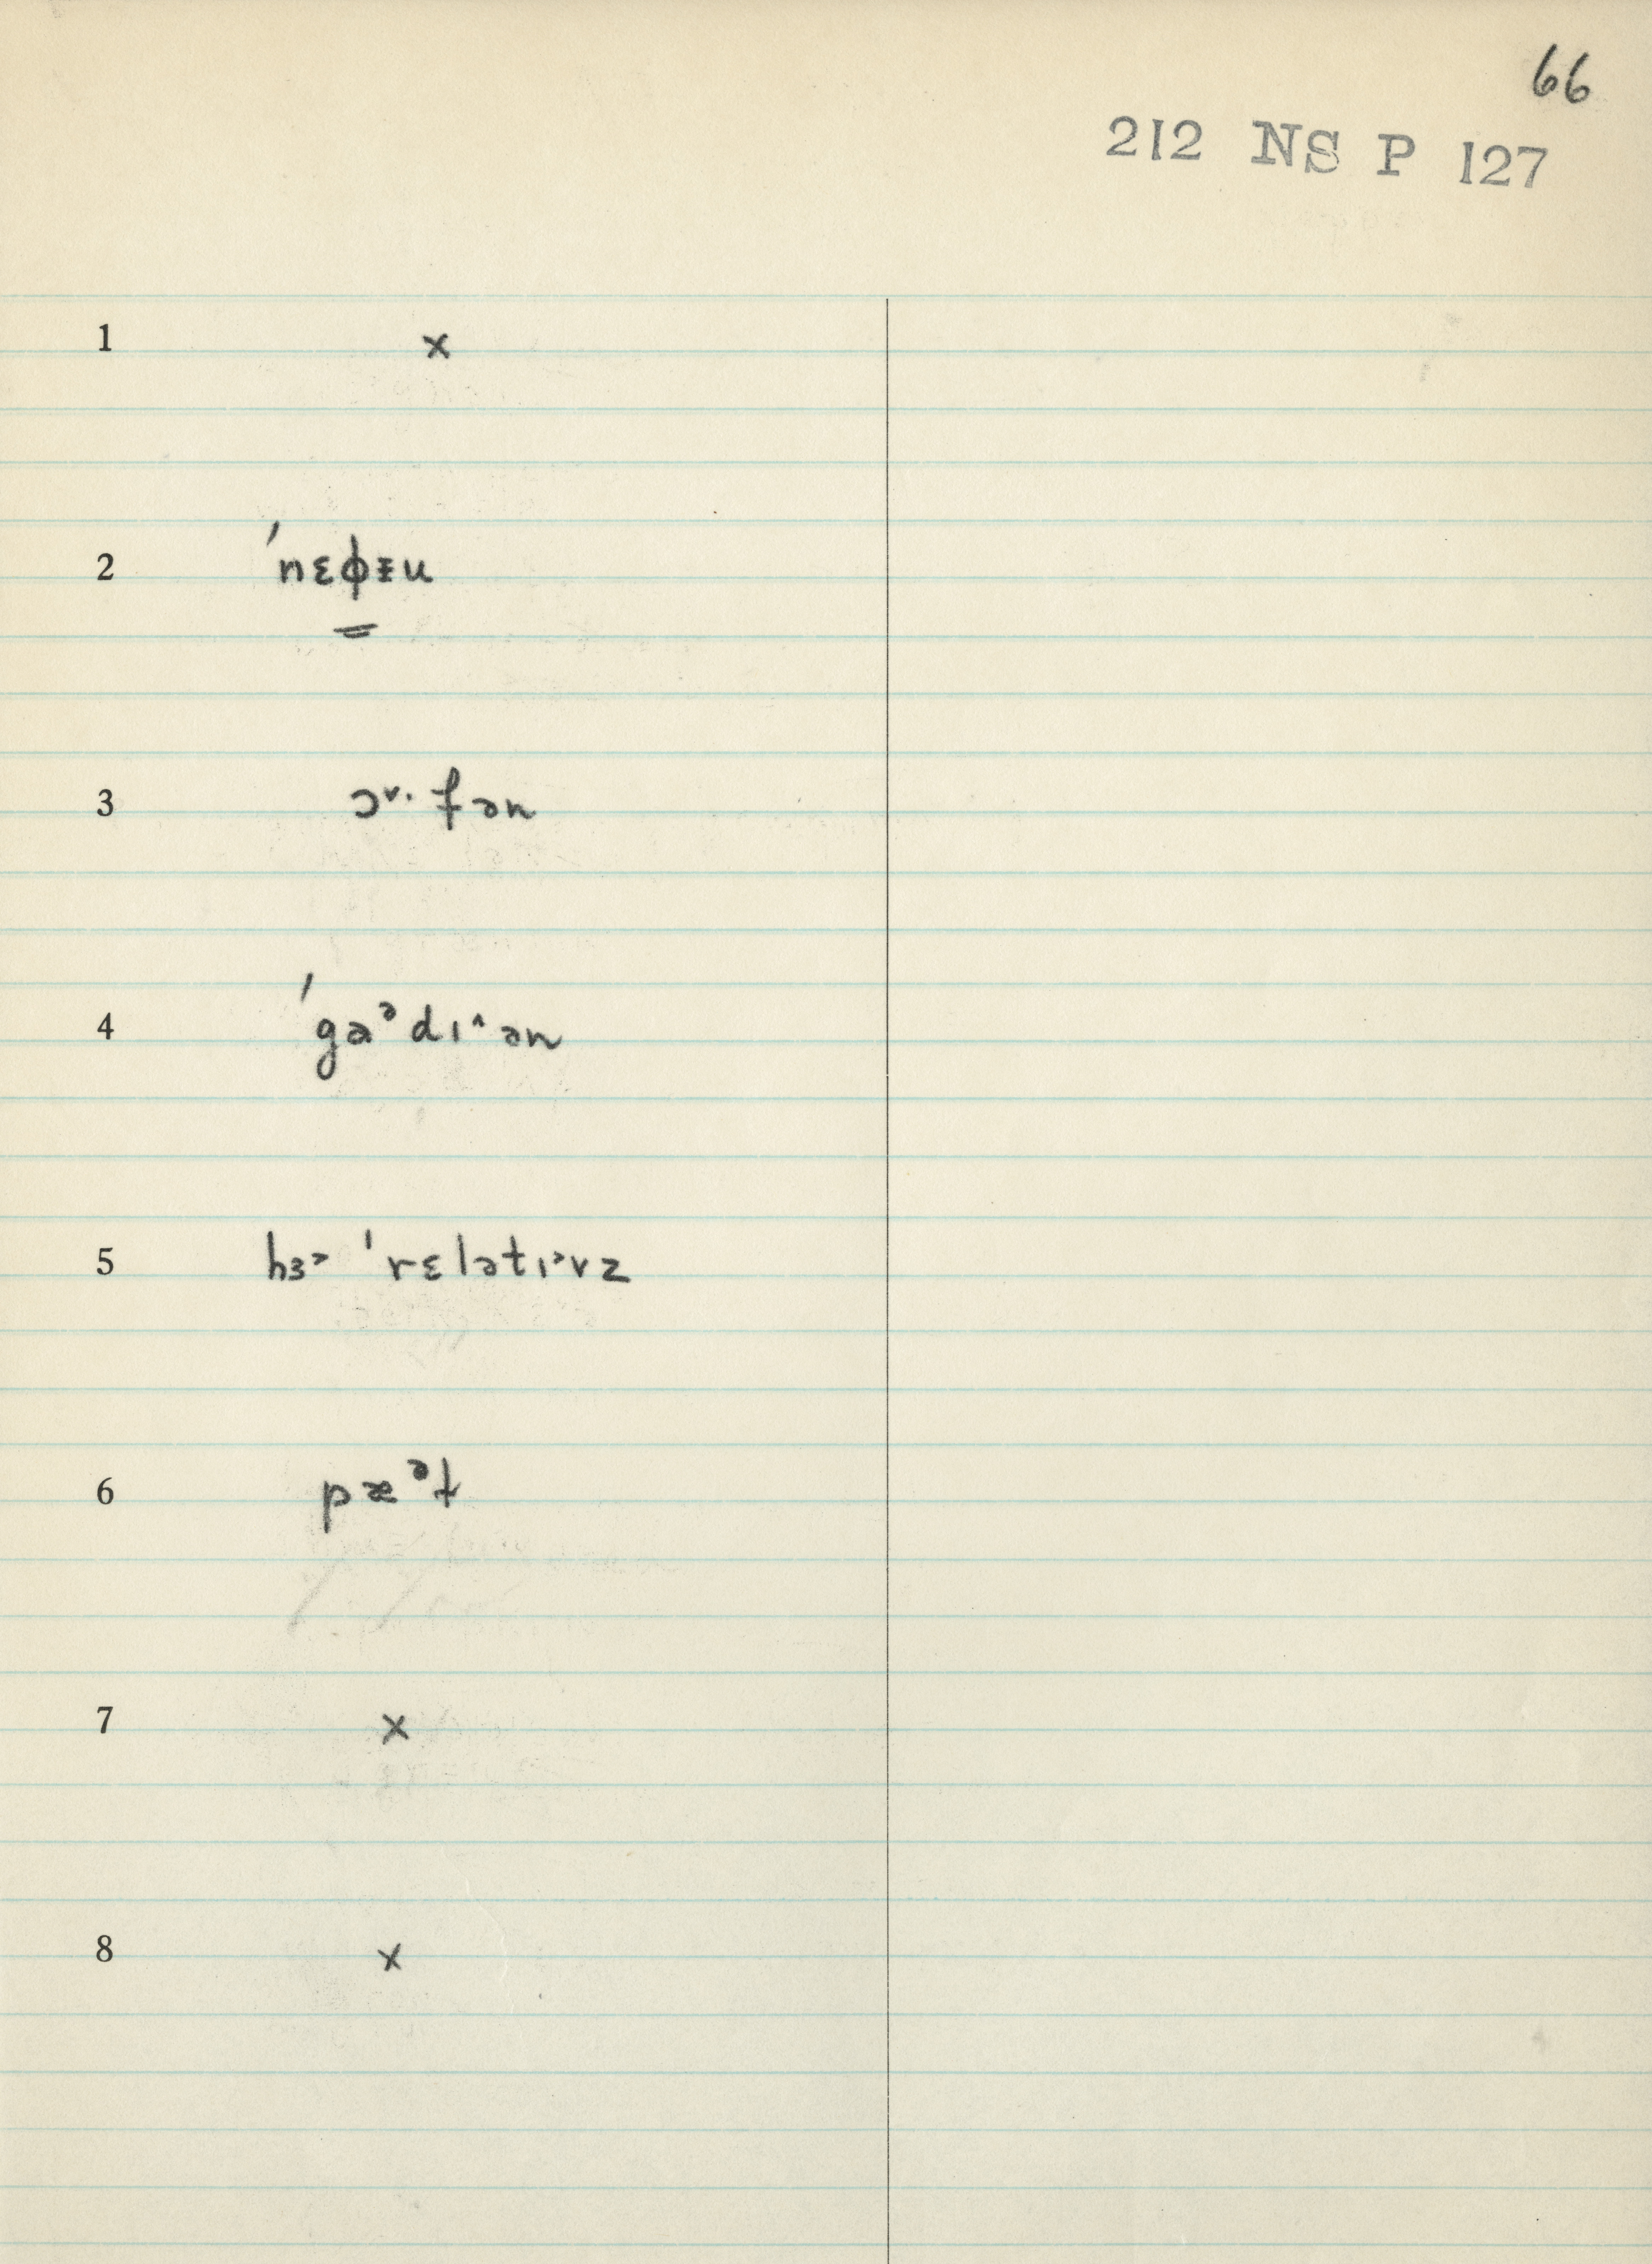 66
212 NS P 127
1 x
2 ˈnɛɸɪu
3 ɔ˅·fən
4 ˈgaᵊdɪ^ən
5 hɜ˃ ˈrɛlətɪ˃vz
6 pæᵊt
7 x
8 x